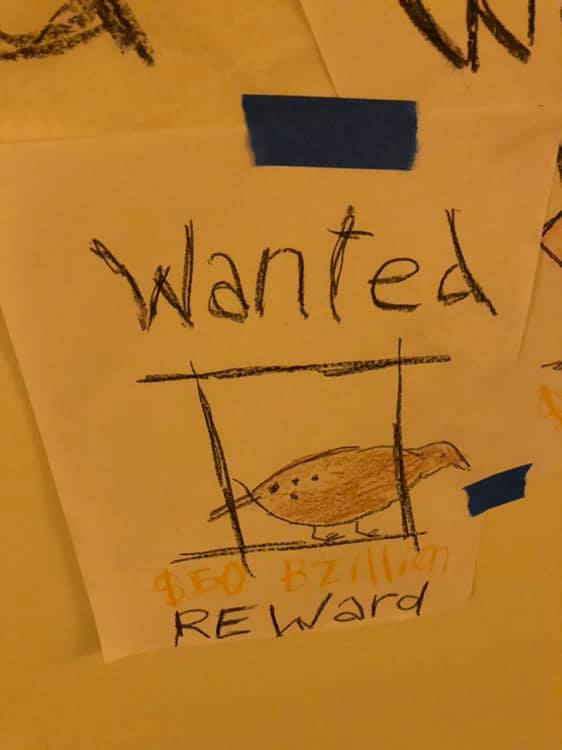 Wanted
$50 Bzillion
REWard